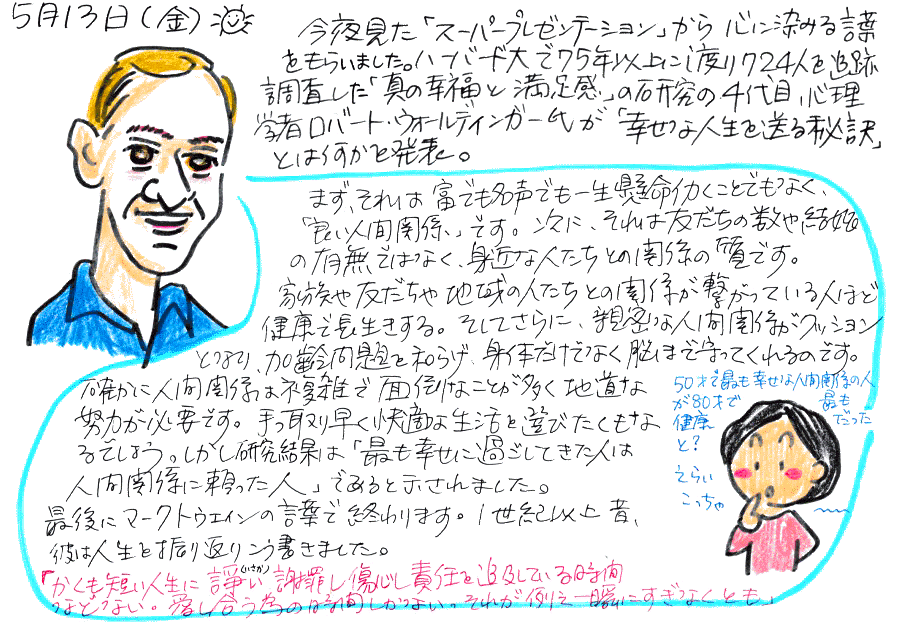 5月13日(金)
今夜見た「スーパープレゼンテーション」から心に染みる言葉
をもらいました。ハーバード大で75年以上に渡り724人を追跡
調査した「真の幸福と満足感」の研究の4代目、心理
学者ロバート・ウォールディンガー氏が「幸せな人生を送る秘訣」
とは何かを発表。
まず、それは富でも名声でも一生懸命働くことでもなく、
「良い人間関係」です。次に、それは友だちの数や結婚
の有無ではなく、身近な人たちとの関係の質です。
家族や友だちや地域の人たちとの関係が繋がっている人ほど
健康で長生きする。そしてさらに、親密な人間関係がクッション
となり、加齢問題を和らげ、身体だけでなく脳まで守ってくれるのです。
確かに人間関係は複雑で面倒なことが多く地道な
努力が必要です。手っ取り早く快適な生活を選びたくもな
るでしょう。しかし研究結果は「最も幸せに過ごしてきた人は
人間関係に頼った人」であると示されました。
最後にマークトウェインの言葉で終わります。1世紀以上昔、
彼は人生を振り返りこう書きました。
「かくも短い人生に諍い(いさかい)謝罪し傷心し責任を追及している時間
などない。愛し合う為の時間しかない。それが例え一瞬にすぎなくとも」
50才で最も幸せな人間関係の人
が80才で最も
健康だった
と?
えらい
こっちゃ